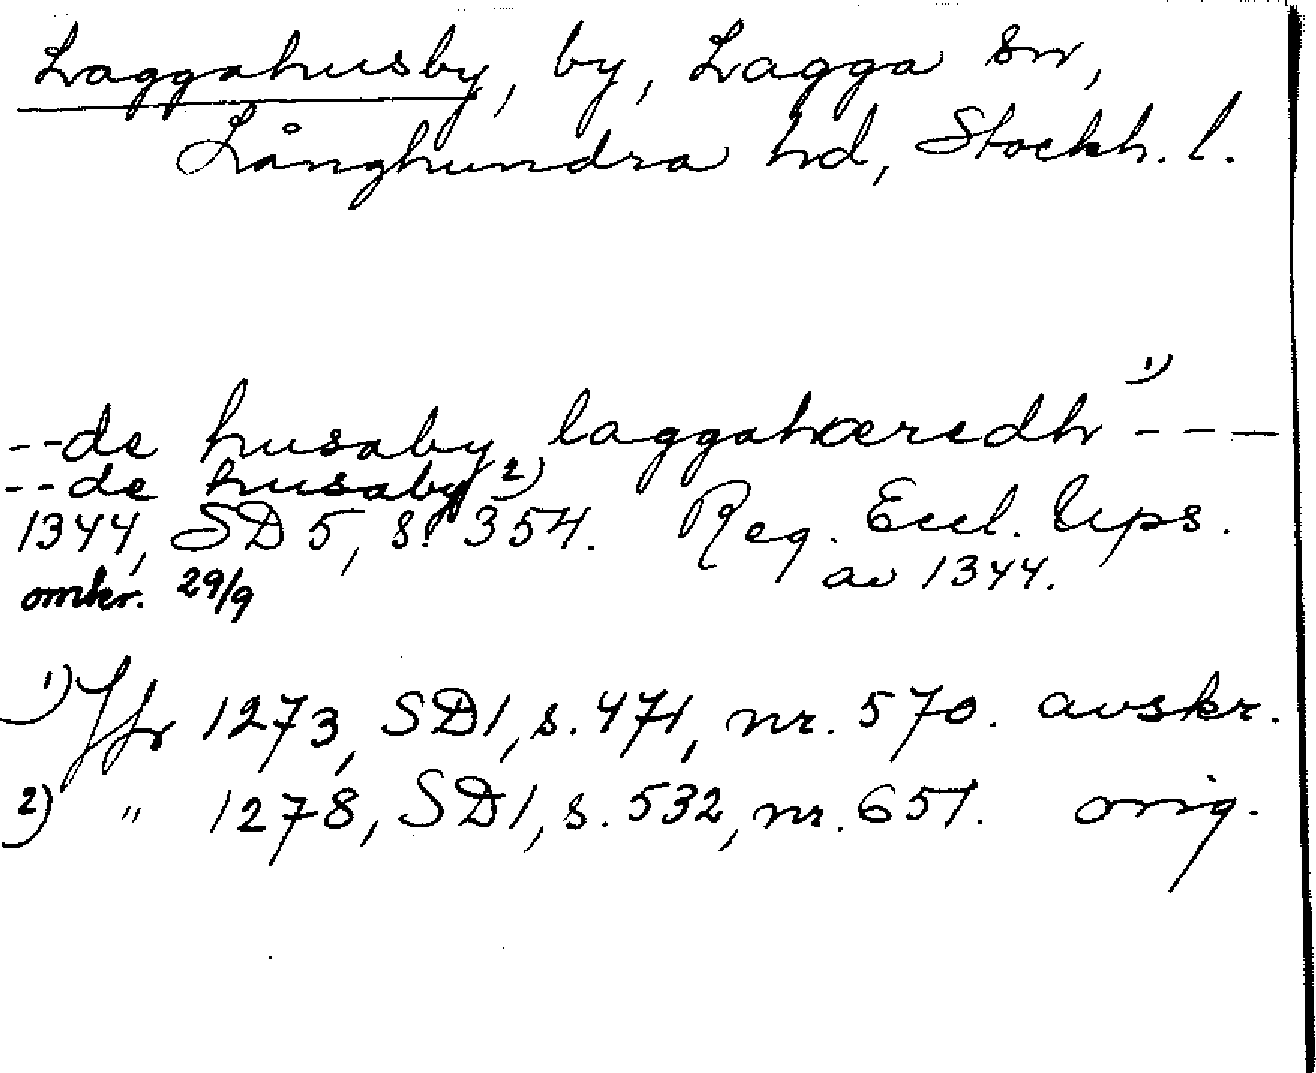 Laggahusby, by, Lagga sn,
Långhundra hd, Stockh. l.
--de husaby laggahæredh 1) ---
--de husaby 2)
1344, SD 5, s. 354. Reg. Eccl. Ups.
omkr. 29/9 av 1344.
1) Jfr 1273, SD 1, s. 471, nr. 570. avskr.
2) " 1278, SD 1, s. 532, nr. 651. orig.